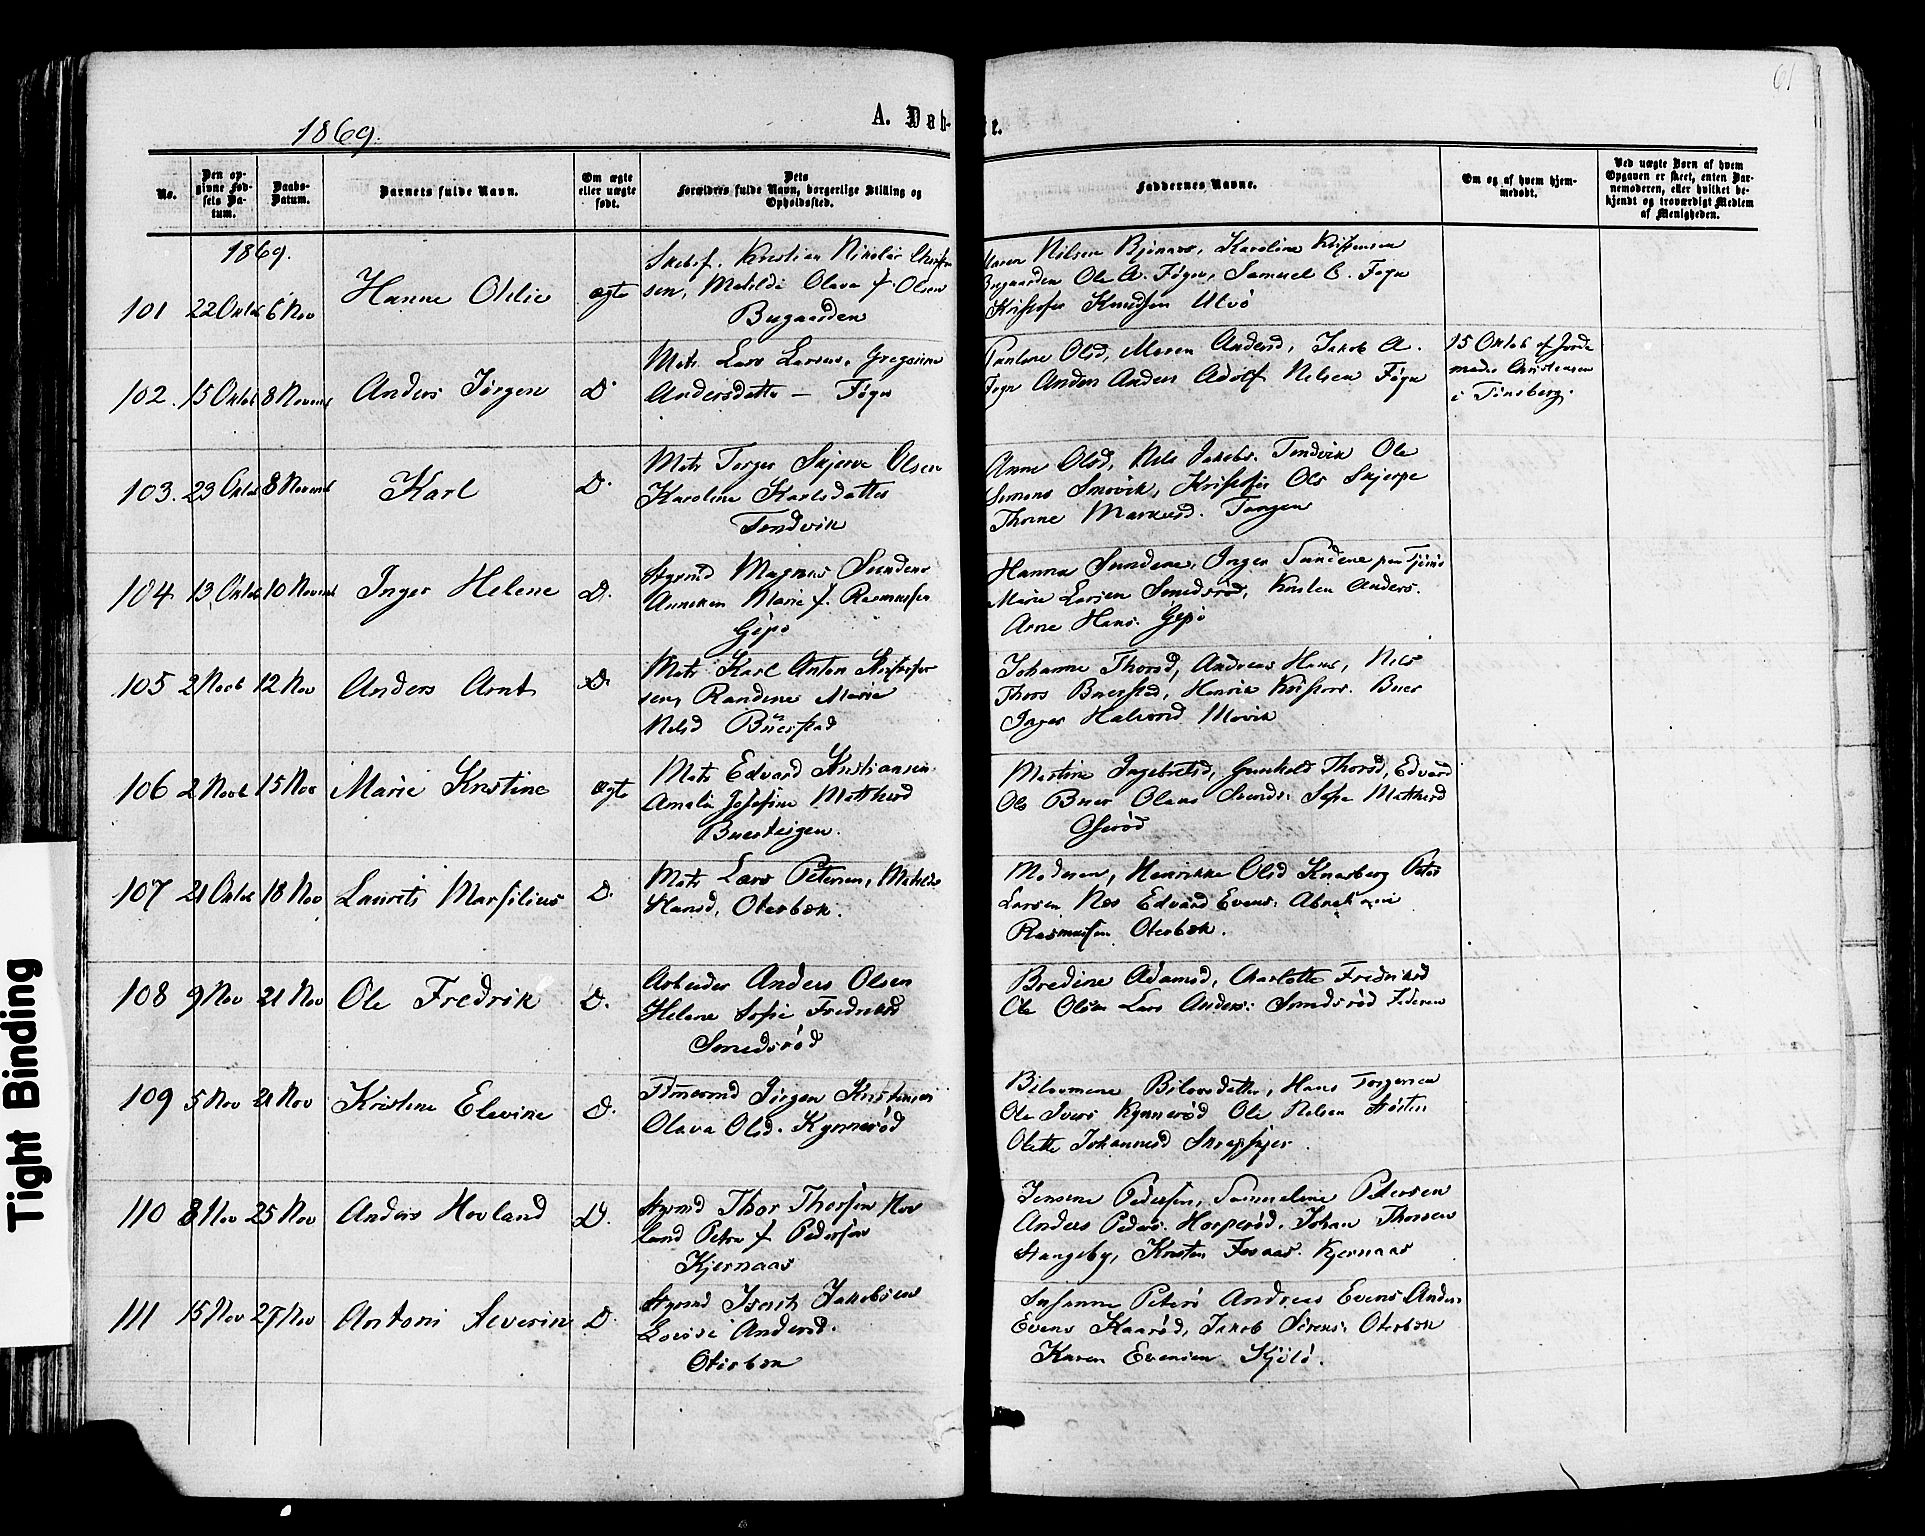 61
1869.
A. Døb-
te.
No.
Den op-
givne Fød-
sels Da-
tum.
Daabs-
Datum.
Barnets fulde Navn.
Om ægte
eller uægte
født.
Dets
Forældres fulde Navn, borgerlige Stilling og
Opholdssted.
Faddernes Navne.
Om og af hvem hjem-
medøbt.
Ved uægte Børn af hvem
Opgaven er skeet, enten Bar-
nemoderen, eller hvilket be-
kjendt og troværdigt Medlem
af Menigheden.
1869.
101 22 Oktob 6 Nov Hanne Othlie ægte
Kristian Nikolai
sen, Matilde Olava f. Olsen
Bugaarden
Maren Nilsen Bjønnes, Karoline Kristensen
Bugaarden Ole A. Føgn, Samuel C. Fogn
Kristofer Knudsen Ulvø
102. 15 Oktob 8 Novemb Anders Jørgen D
Matr. Lars Larsen, Gregorine
Andersdatter — Føgn
Pauline Olsd, Maren Andersd, Jakob A.
Fogn Anders Anders Adolf Nilsen Føgn
15 Oktob af Jorde
moder Christensen
i Tønsberg.
103. 23 Oktob 8 Novemb Karl D.
Matr Torger Skjerve Olsen
Karoline Karlsdatter
Tendvik
Anne Olsd, Nils Jakobs. Tendvik Ole
Simons Smovik, Kristofer Ols Skjerpe
Thorne Markusd. Torgen
104 13 Oktob 10 Novemb Inger Helene D.
Styrmd Magnus Sundene
Anneken Marie f. Rasmussen
Gipø
Hanna Sundene, Inger Sundene paa Tjømø
Marie Larsen Smedsrød, Kristen Anders.
Arne Hans. Gipø
105 2 Novb 12 Nov Anders Arnt D.
Matr Karl Anton Kristofer
sen, Randine Marie
Nilsd Buerstad
Johanne Thorsd, Andreas Hans, Nils
Thors Buerstad, Henrik Kristoffers. Buer
Inger Halvord Movik
106 2 Novb 15 Nov Marie Kristine ægte
Matr Edvard Kristiansen
Amalie Josefine Mathisd
Buerteigen.
Martine Ingebretsd, Gunhild Thorsd, Edvard
Ols Buer Olaus Svends. Sofie Mathisd
Oserød
107 21 Oktob 18 Nov Laurits Marsilius D.
Matr Lars Petersen, Matilde
Hansd, Oterbæk.
Moderen, Henrikke Olsd Knarberg Peter
Larsen Næs Edvard Evens. Abraham
Rasmussen Oterbæk.
108 9 Nov 21 Nov Ole Fredrik D.
Arbeider Anders Olsen
Helene Sofie Fredriksd
Smedsrød
Bredine Adamsd, Charlotte Fredriksd
Ole Olsen Lars Anders: Smedsrød Faderen
109 5 Nov 21 Nov Kristine Elevine D.
Tømrmd Jørgen Kristensen
Olava Olsd. Kynnerød
Bilovmene Bilovsdatter, Hans Torgersen
Ole Ivers Kynnerød Ole Nilsen Høsten
Olette Johannesd Skrapskjer.
110 8 Nov 25 Nov Anders Hovland D.
Styrmd Thor Thorsen Hov
land Petra f Pedersen
Kjernaas
Jensine Pedersen, Samueline Petersen
Anders Peders. Horperød. Johan Thorsen
Stangeby, Kristen Foraas. Kjernaas
111 15 Nov 27 Nov Antoni Severin D.
Styrmd Isach Jakobsen
Lovise Andersd.
Oterbæk
Susanne Peters Andreas Evens Anders
Evens Kaarød, Jakob Sørens. Oterbæk
Karen Evensen Kjølø.
Tight Binding